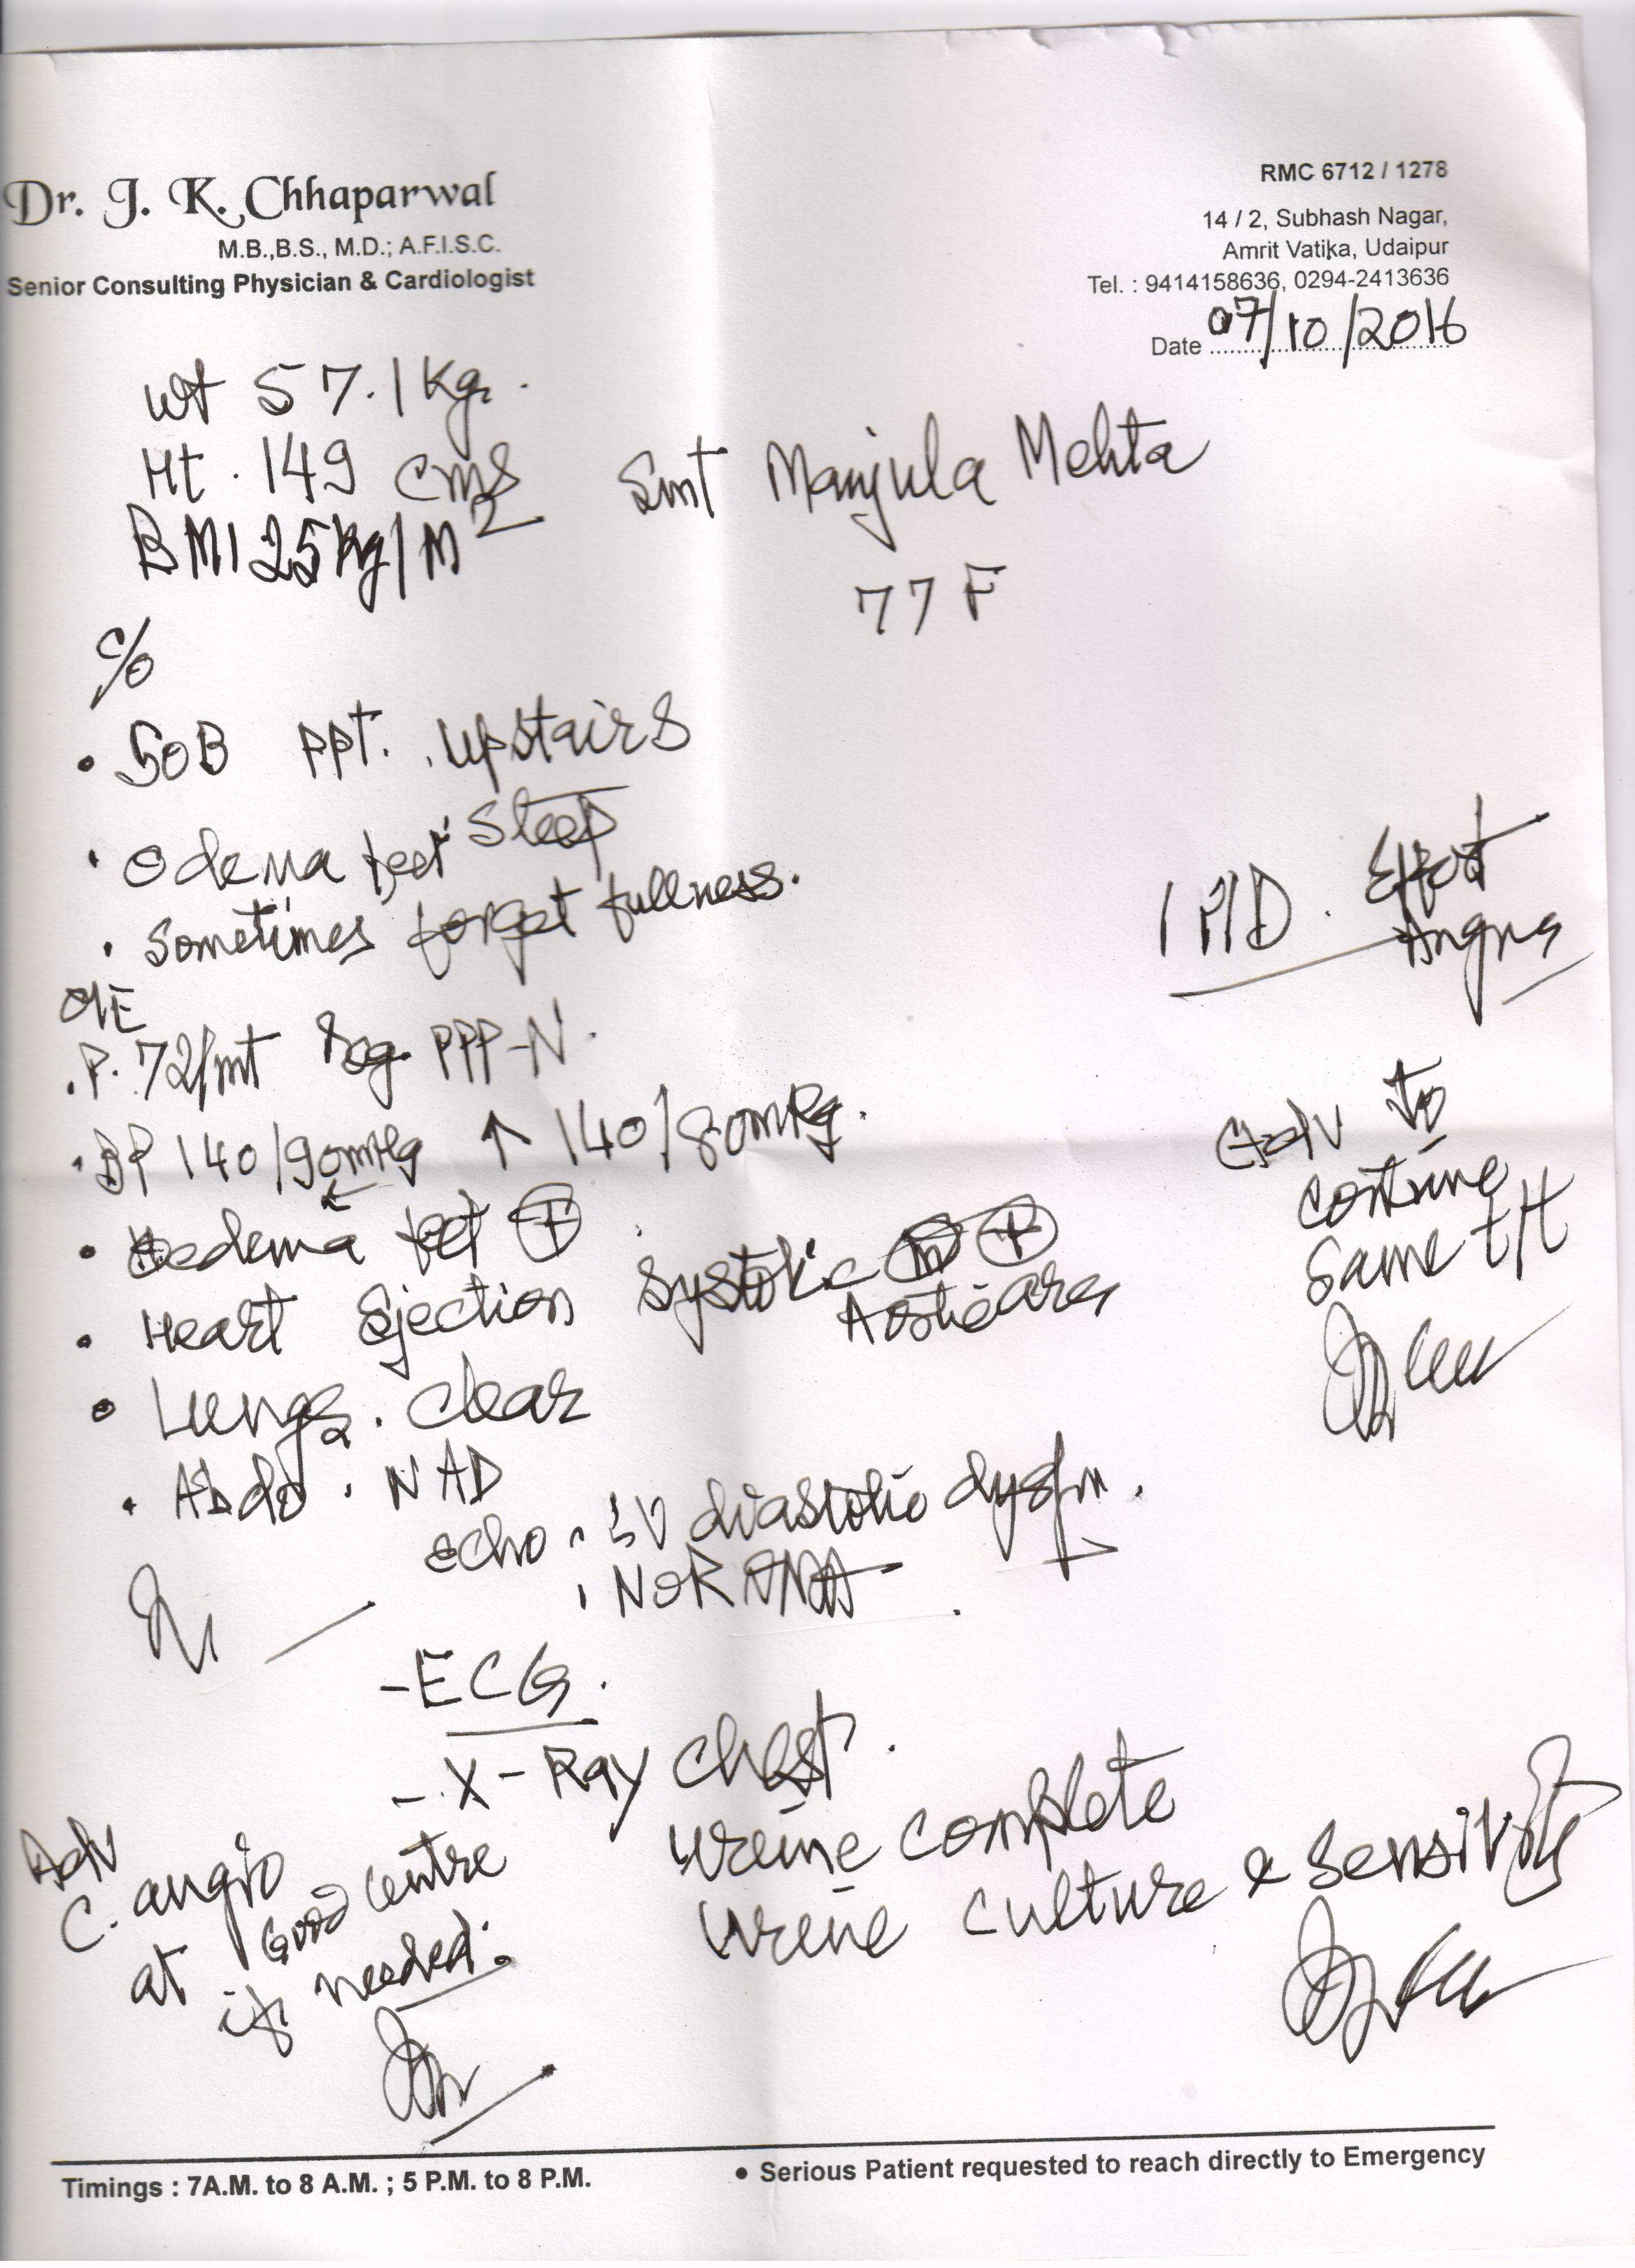 Dr. J. K. Chhaparwal
M.B.,B.S., M.D.; A.F.I.S.C.
Senior Consulting Physician & Cardiologist
RMC 6712 / 1278
14 / 2, Subhash Nagar,
Amrit Vatika, Udaipur
Tel. : 9414158636, 0294-2413636
Date 07/10/2016
Wt 57.1 Kg.
Ht. 149 cms
BMI 25 Kg/M2
Smt Manjula Mehta
77 F
C/o
• SOB PPT. upstairs
• Odema feet Sleep
• Sometimes forget fullness.
O/E
• P. 72/mt Reg. PPP-N.
• BP 140/90mmHg ↑ 140/80mmHg.
• Oedema feet +
• Heart Ejection Systolic m +
Aortic area
• Lungs. clear
• Abdo. NAD
Echo • LV diastolic dysfn.
• No RWMA
IHD. Effort
Angina
Adv to
continue
Same t/t
- ECG.
- X-Ray chest.
Ureine complete
Ureine culture & sensivity
Adv
C. angio
at Good Centre
if needed.
Timings : 7A.M. to 8 A.M. ; 5 P.M. to 8 P.M.
• Serious Patient requested to reach directly to Emergency